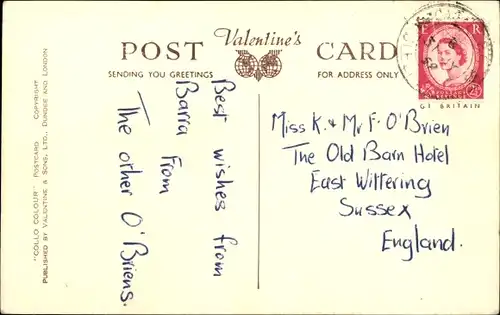 Valentine's
POST CARD
SENDING YOU GREETINGS
FOR ADDRESS ONLY
Best wishes from
Barra From
The other O'Briens.
"COLLO COLOUR" POSTCARD COPYRIGHT
PUBLISHED BY VALENTINE & SONS, LTD., DUNDEE AND LONDON
E R
Gt BRITAIN
Miss K. & Mr F. O'Brien
The Old Barn Hotel
East Wittering
Sussex
England.